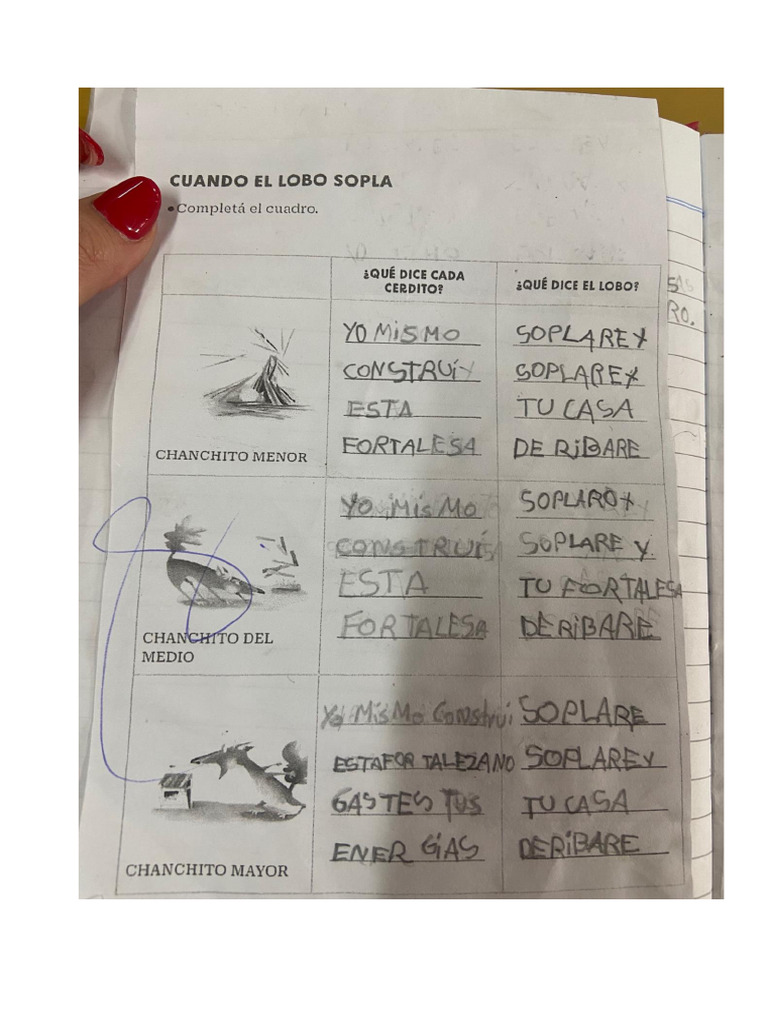 CUANDO EL LOBO SOPLA
• Completá el cuadro.
¿QUÉ DICE CADA CERDITO?
¿QUÉ DICE EL LOBO?
CHANCHITO MENOR
YO MiSMO
CONSTRUÍ
ESTA
FORTALESA
SOPLARE Y
SOPLARE Y
TU CASA
DE RiBARE
CHANCHITO DEL MEDIO
YO MisMo
CONSTRUÍ
ESTA
FORTALESA
SOPLARO Y
SOPLARE Y
TU FORTALESA
DERiBARE
CHANCHITO MAYOR
Yo MisMo Construi
ESTAFOR TALEZANO
GASTES TUS
ENER GÍAS
SOPLARE
SOPLARE Y
TU CASA
DERiBARE
RO.